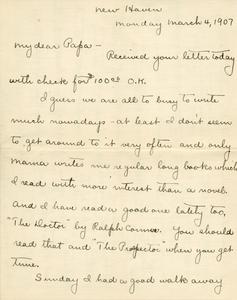 New Haven
Monday March 4, 1907
My dear Papa -
Received your letter today
with check for $100.00 O.K.
I guess we are all to busy to write
much nowadays - at least I don't seem
to get around to it very often and only
Mama writes me regular long books which
I read with more interest than a novel.
And I have read a good one lately too,
"The Doctor" by Ralph Connor. You should
read that and "The Prospector" when you get
time.
Sunday I had a good walk away